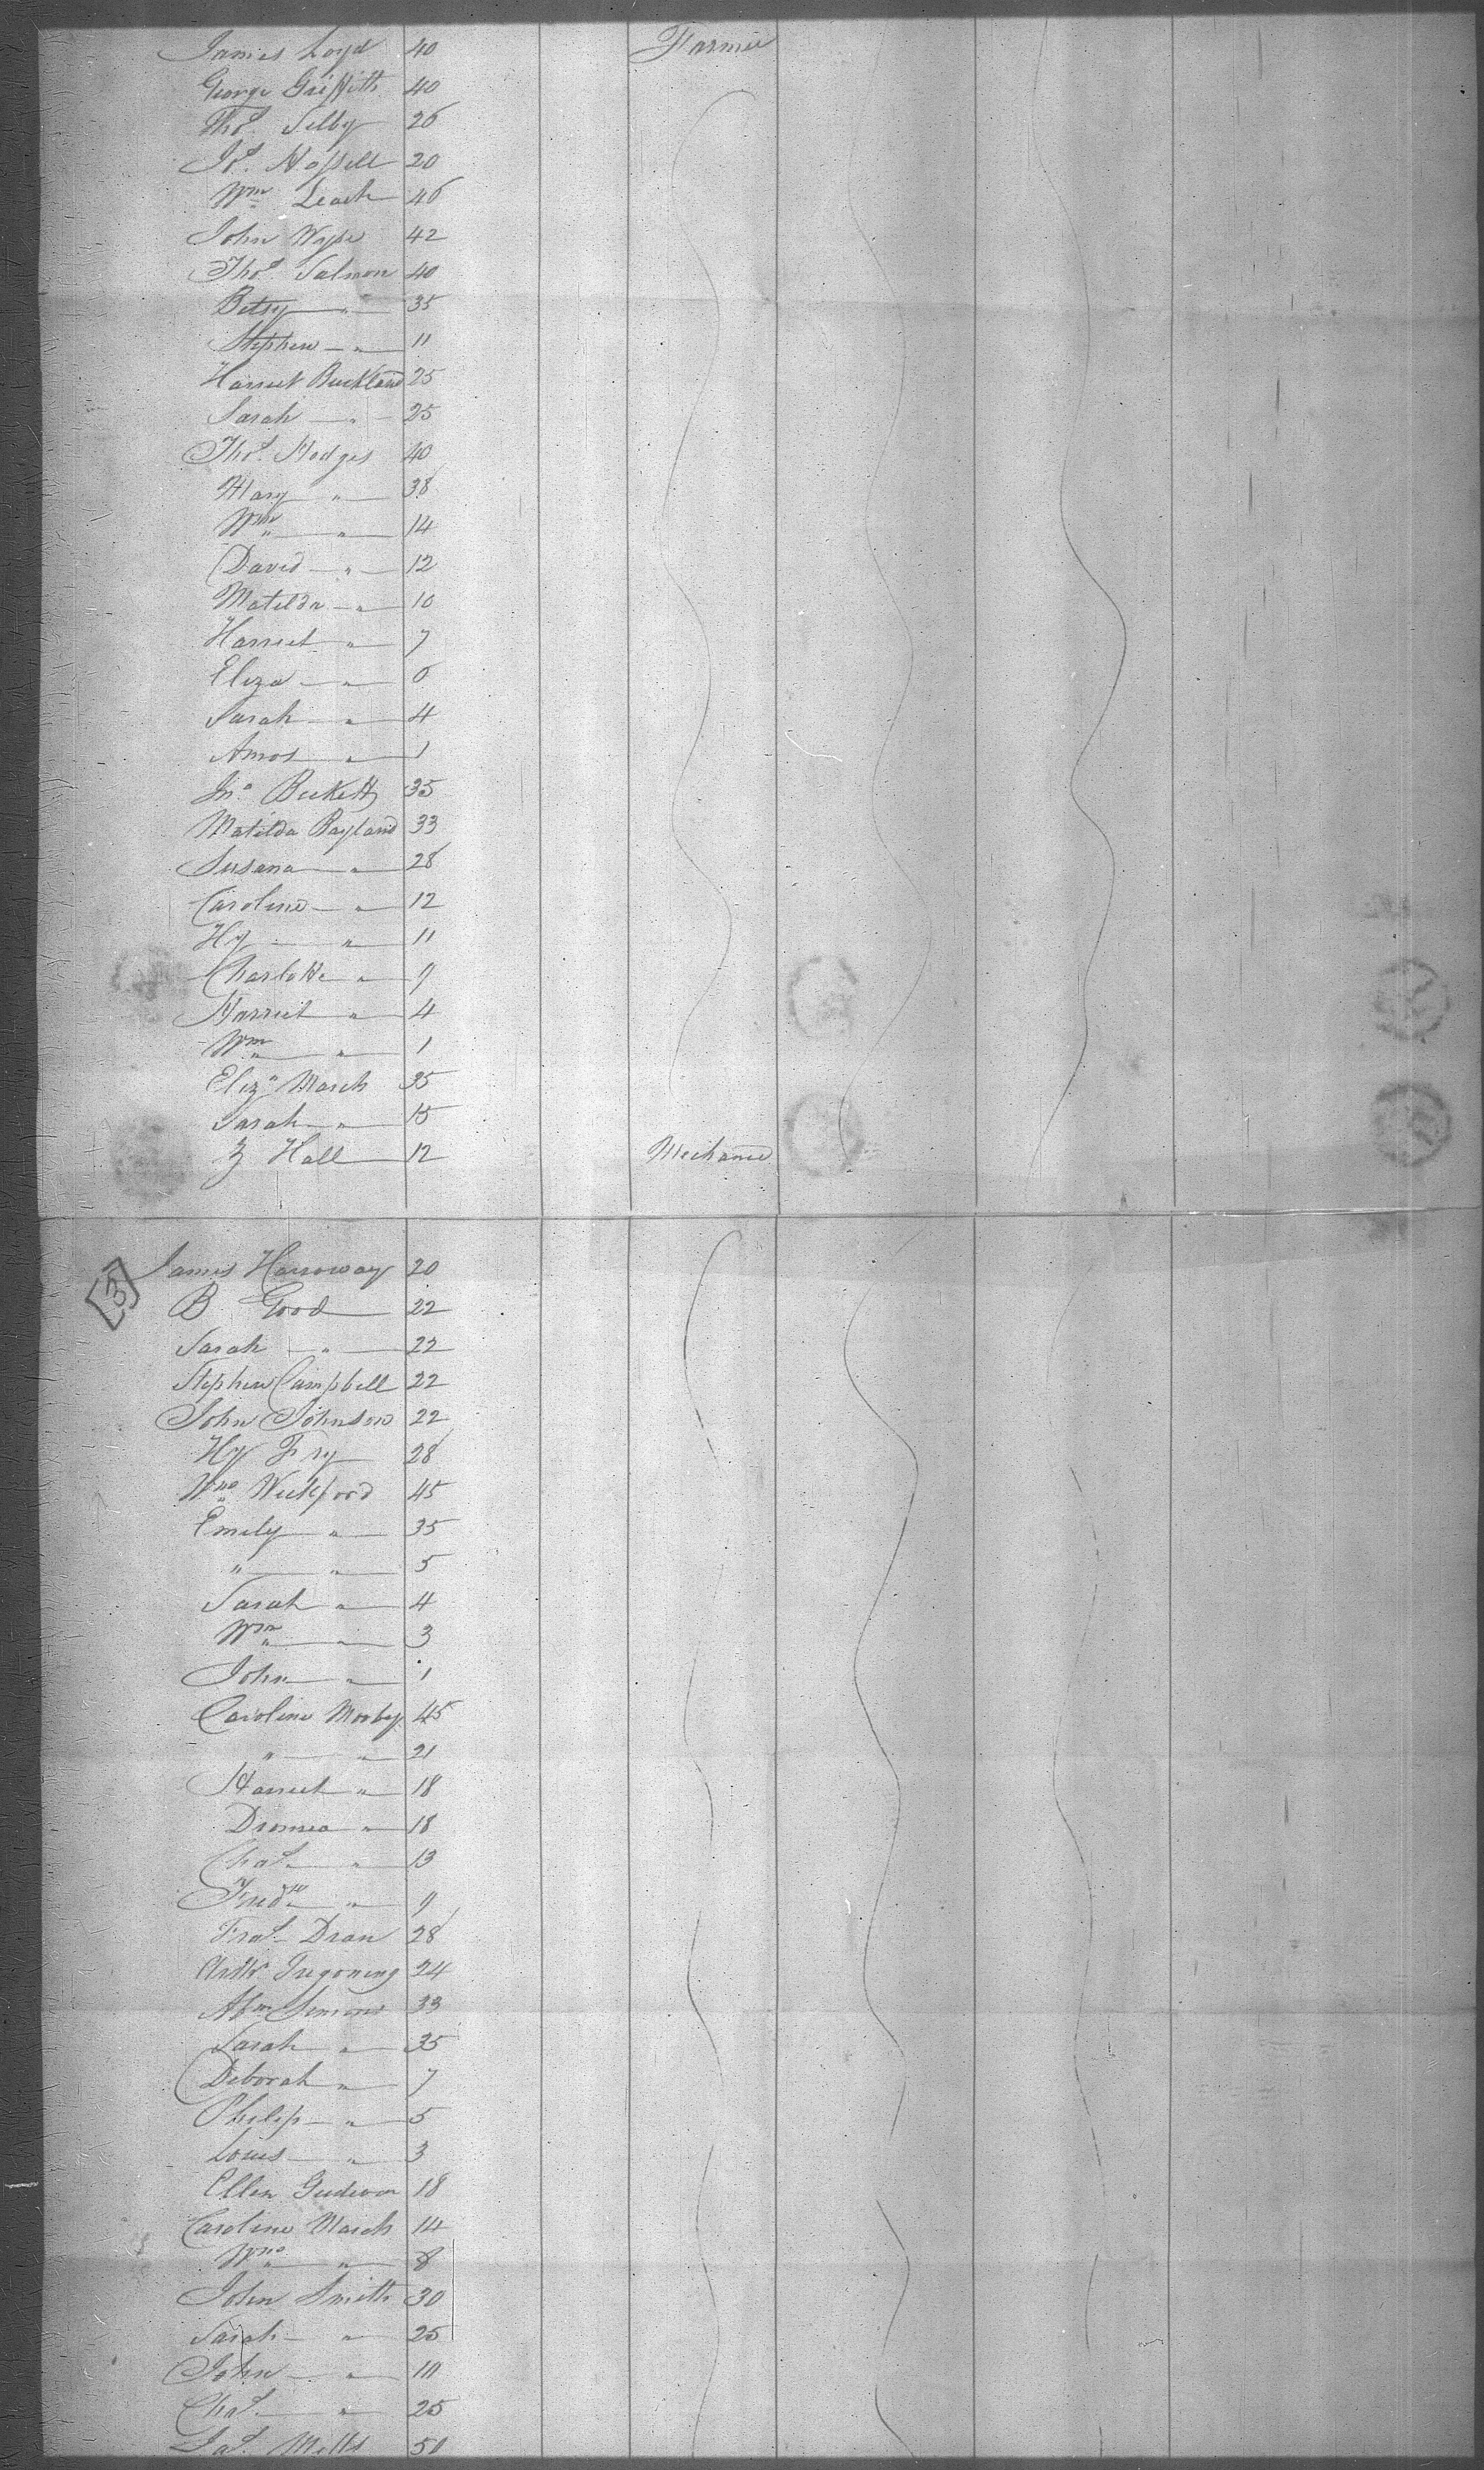 James Loyd 40 Farmer
George Griffith 40
Thos. Selby 26
Js. Hassell 20
Wm Leach 46
John Wyse 42
Thos. Salmon 40
Betsy " 35
Stephen " 11
Harriet Buckland 25
Sarah " 25
Thos. Hodges 40
Mary " 38
Wm " 14
David " 12
Matilda " 10
Harriet " 7
Eliza " 6
Sarah " 4
Amos " 1
Jno. Beckett 35
Matilda Bayland 33
Susana " 28
Caroline " 12
Hy " 11
Charlotte " 9
Harriet " 4
Wm " 1
Eliza March 35
Sarah " 15
Z Hall 12 Mechanic
3
James Harroway 20
B Good 22
Sarah " 22
Stephen Campbell 22
John Johnson 22
Hy Fry 28
Wm Weekford 45
Emily " 35
" " 5
Sarah " 4
Wm " 3
John " 1
Caroline Morby 45
" " 21
Harriet " 18
" 18
Chas. " 13
Fredk " 9
Fras. Dran 28
Arthr Tregoning 24
Simons 33
Sarah " 35
Deborah " 7
Philip " 5
Louis " 3
Ellen 18
Caroline March 14
Wm " 8
John Smith 30
Sarah " 25
John " 10
Chas. " 25
Jas. Mills 50